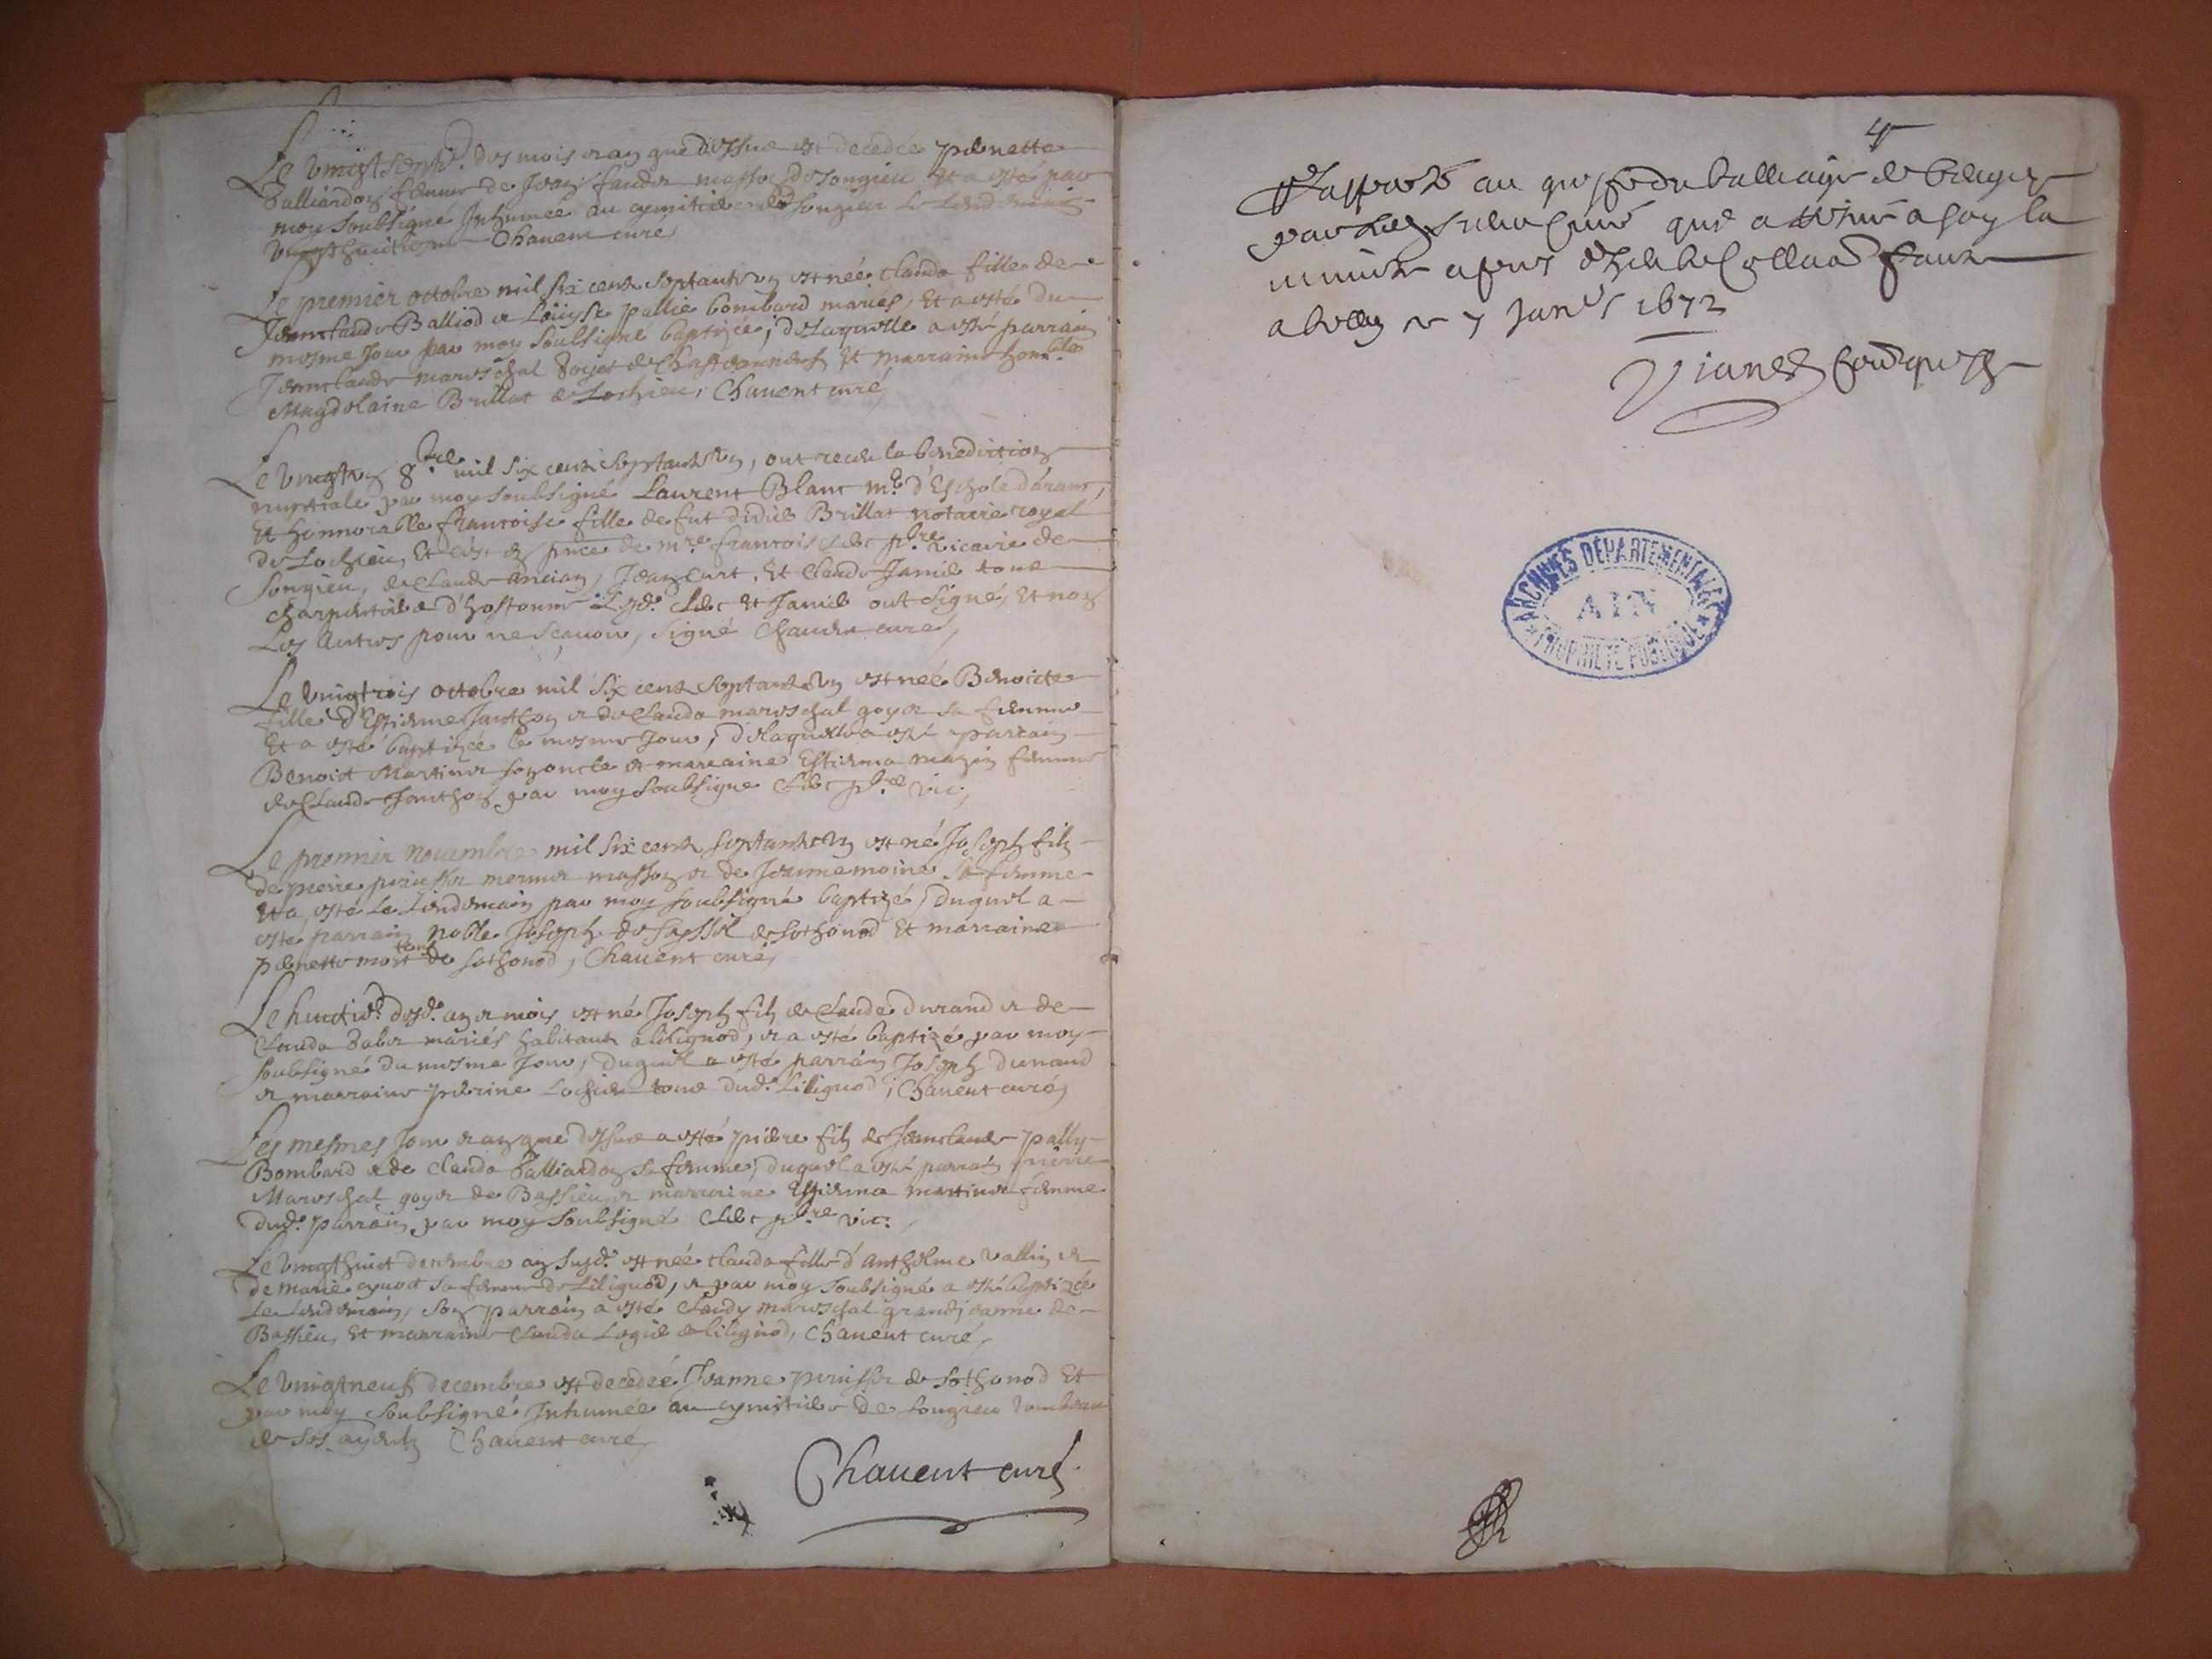 Le vingt sept.e des mois et an que dessus est decedée pernette
Balliardon femme de Jean fauder masson de songieu et a esté par
moy soubsigné Inhumée au cymitiere de songieu le lendemain
vingthuitieme Chauent curé
Le premier octobre mil six cent septante un est née Clauda fille de
Jeanclaude Balliod et Loüyse pallié bombard mariés, Et a esté du
mesme Jour par moy soubsigné baptizée, de laquelle a esté parrain
Jeanclaude mareschal et marraine hon.ble
Magdelaine Brillat de Lochieu, Chauent curé
Le vingt un 8.bre mil six cent septante un, ont receu la benediction
nuptiale par moy soubsigné Laurent Blanc m.e d'Eschole d'aranc,
Et honnorable francoise fille de fut didier Brillat notaire royal
de Lochieu, Et c'est en pnce de m.re francois Clerc p.bre vicaire de
Songieu, de Claude ancian, Jean Curt, Et Claude Janier tous
charpentiers d'hostonne Lesd. Clerc et Janier ont signé, Et non
Les autres pour ne sçauoir, signé Chauent curé,
Le vingtrois octobre mil six cent septante un est née Benoicte
fille d'Estienne Janthon et de Clauda mareschal goyet sa femme
Et a esté baptizée le mesme Jour, de laquelle a esté parrain
Benoict Martinet son oncle et marraine Estienna magnin femme
de Claude Janthon par moy soubsigné Clerc p.bre vic.
Le premier nouembre mil six cent septante un est né Joseph filz
de pierre perrussel mermet masson et de Jeanne moine sa femme
Et a esté le Lendemain par moy soubsigné baptizé, duquel a
esté parrain noble Joseph de seyssel de sothonod Et marraine
pernette mort tous de sothonod, Chauent curé
Le huictie.e desd. an et mois est né Joseph filz de Claude durand et de
Clauda mariés habitant a liliguod, et a esté baptizé par moy
soubsigné du mesme Jour, duquel a esté parrain Joseph durand
et marraine perrine Lochier tous dud. Liliguod, Chauent curé,
Les mesmes Jour et an que dessus a esté pierre filz de Jeanclaude pally
Bombard et de Clauda Balliardon sa femme, duquel a esté parrain pierre
Mareschal goyet de Bassieu, et marraine Estienna martinet femme
dud. parrain, par moy soubsigné Clerc p.bre vic.
Le vingthuict decembre an susd. est née clauda fille d'anthelme vallin et
de marie aynod sa femme de Liliguod, et par moy soubsigné a esté baptizée
le lendemain, son parrain a esté Claudy mareschal grandjeanne de
Bassieu, Et marraine Clauda Logier de liliguod, Chauent curé,
Le vingtneuf decembre est decedée Jeanne perrussel de Sothonod Et
par moy soubsigné Inhumée au cymitiere de songieu tombeau
de ses ayeulx Chauent curé
Chauent curé
4
Rapporté au greffe du balliage de beugey
par led. sieur Curé que a retiré a soy la
minute apres deheue Collaon faicte
a belley ce 7 Janvr 1672
Vianet
ARCHIVES DÉPARTEMENTALES
AIN
PROPRIÉTÉ PUBLIQUE